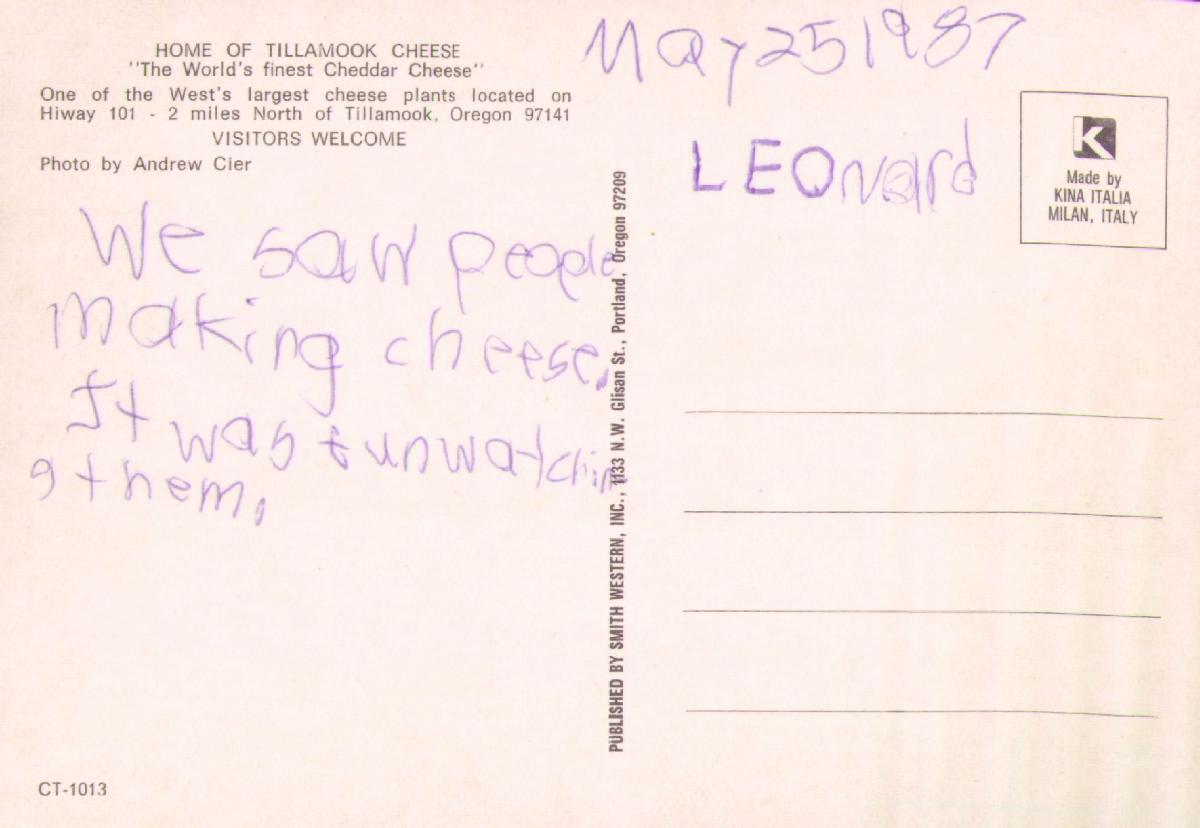 HOME OF TILLAMOOK CHEESE
"The World's finest Cheddar Cheese"
One of the West's largest cheese plants located on
Hiway 101 - 2 miles North of Tillamook, Oregon 97141
VISITORS WELCOME
Photo by Andrew Cier
We saw people
making cheese.
It was funwatchin
g them.
CT-1013
PUBLISHED BY SMITH WESTERN, INC., 1133 N.W. Glisan St., Portland, Oregon 97209
May 25 1987
LEOnard
K
Made by
KINA ITALIA
MILAN, ITALY